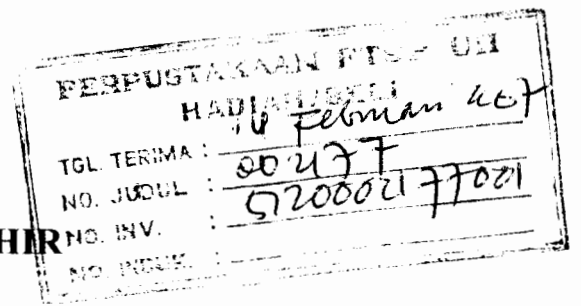 PERPUSTAKAAN FTSP UII
HADIAH/BELI
TGL. TERIMA : 14 Februari 2007
NO. JUDUL : 002177
NO. INV. : 5120002177001
NO. INDUK. :
HIR